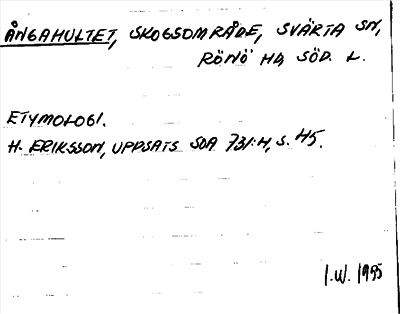 ÅNGAHULTET, SKOGSOMRÅDE, SVÄRTA SN,
RÖNÖ HD, SÖD. L.
ETYMOLOGI.
H. ERIKSSON, UPPSATS SOA 731:H, S. 45.
I.W. 1995